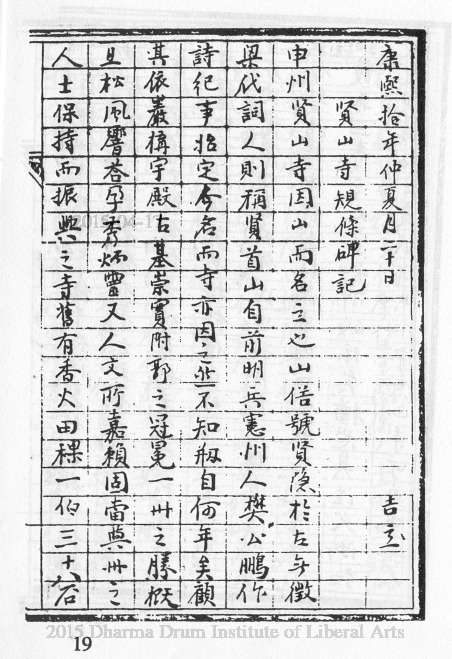 康熙拾年仲夏月二十日　吉立
賢山寺規條碑記
申州賢山寺因山而名之也山俗號賢隐於古無徵
梁代詞人則稱賢首山自前明兵憲州人樊公鵬作
詩紀事始定今名而寺亦因之並不知剏自何年矣顧
其依巖構宇殿古基崇實附郭之冠冕一州之勝概
且松風響荅孕秀炳靈又人文所嘉賴固當與州之
人士保持而振興之寺舊有香火田稞一伯三十八石
2015 Dharma Drum Institute of Liberal Arts
19